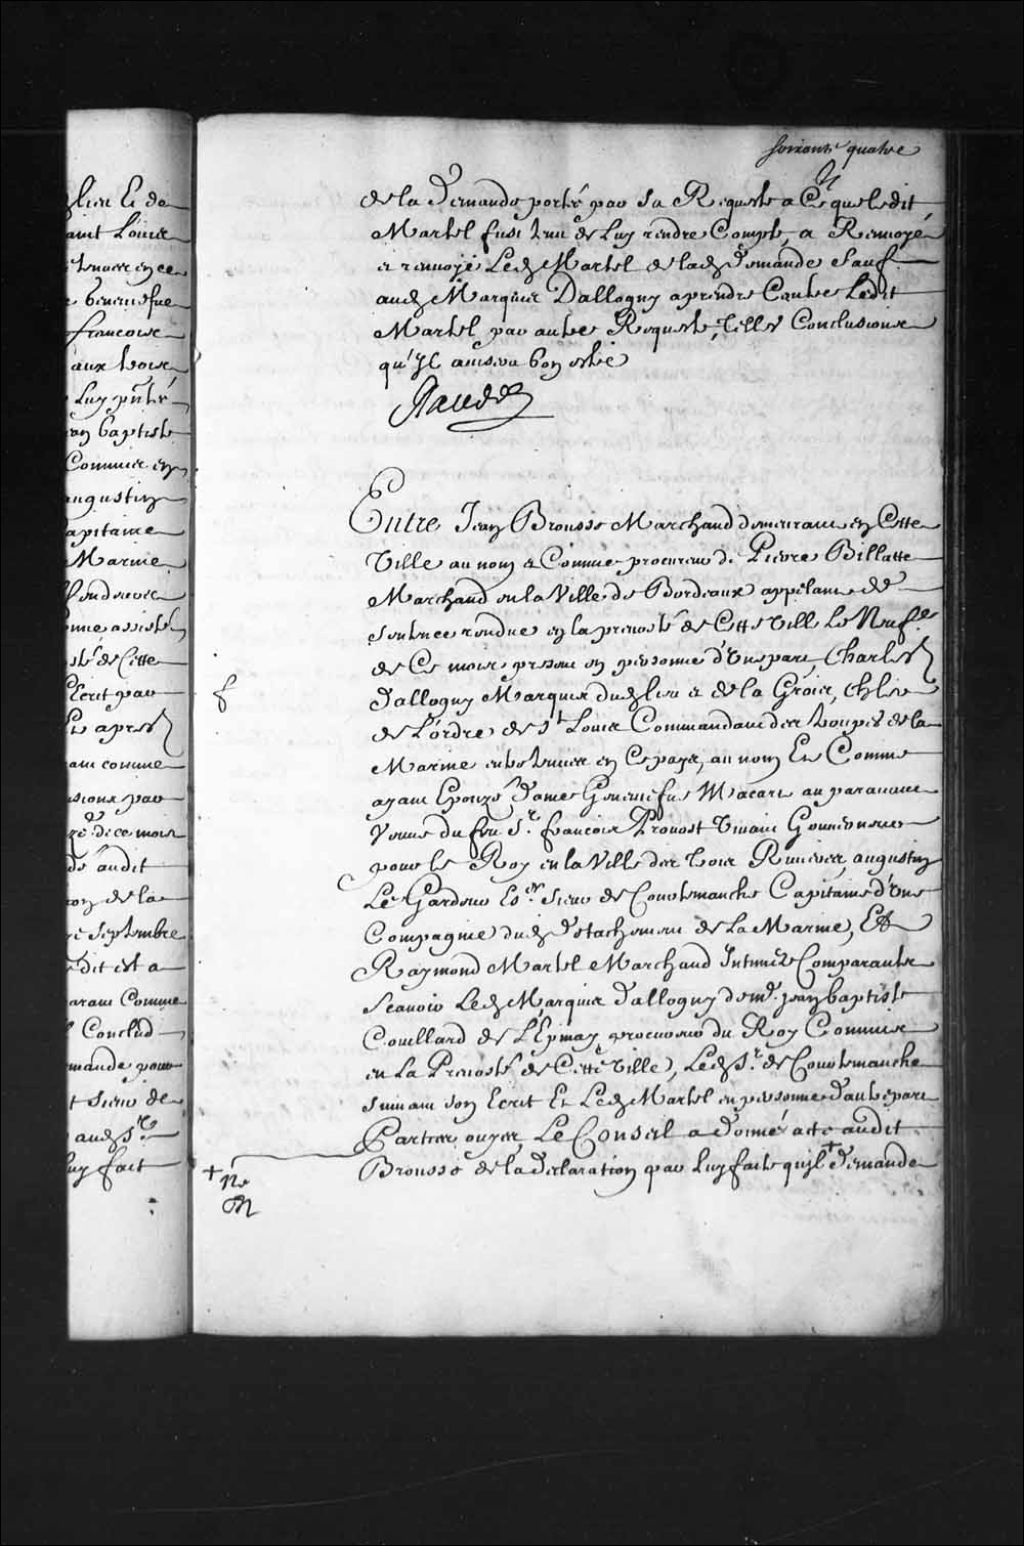 soixante quatre
de la Demande porté par sa Requeste a Ce que ledit
Martel fust tenu de luy rendre Compte, a Renvoyé
et renvoye Led Martel de lad Demande Sauf
aud Marquis Dallogny a prendre Contre Ledit
Martel par autre Requeste, Telles Conclusions
qu'Jl avisera bon estre
Entre Jean Brousse Marchand demeurant en Cette
Ville au nom et Comme procureur de Pierre Billatte
Marchand en la Ville de Bordeaux appelant de
Sentence rendue en la prevosté de Cette Ville Le Neufe
de Ce mois present en personne d'Une part, Charles
Dallogny Marquis dud lieu et de la Groix, Chlier
de L'ordre de St Louis Commandant des troupes de la
Marine entretenues en Ce pays, au nom Et Comme
ayant Epouzé Dame Genevefve Macart auparavant
Veuve du feu Sr. francois Provost Vivant Gouverneur
pour le Roy en la Ville des trois Rivieres, augustin
Le Gardeur Eser. Sieur de Courtemanche Capitaine d'Une
Compagnie dud Detachement de La Marine, Et
Raymond Martel Marchand Intimez Comparants
Scavoir Led Marquis Dallogny de me. jean baptiste
Couillard de L'Epinay procureur du Roy Commis
en La Prevosté de Cette Ville, Led Sr. de Courtemanche
Suivant son Ecrit Et Led Martel en personne d'autre part
Parties ouyes, Le Conseil a Donné acte audit
Brousse de la Declaration par luy faite qu'jl + Demande
+ ne
lieu Et de
aint Louis
genevefve
francoise
aux trois
Luy pnté
ean baptiste
Commis en
augustin
apitaine
Marine
sté de Cette
Ecrit par
Et apres
ant comme
usions par
de ce mois
de audit
on de la
e Septembre
dit est a
arant Comme
Conclud
mande pour
t Sieur de
aud Sr
luy fait